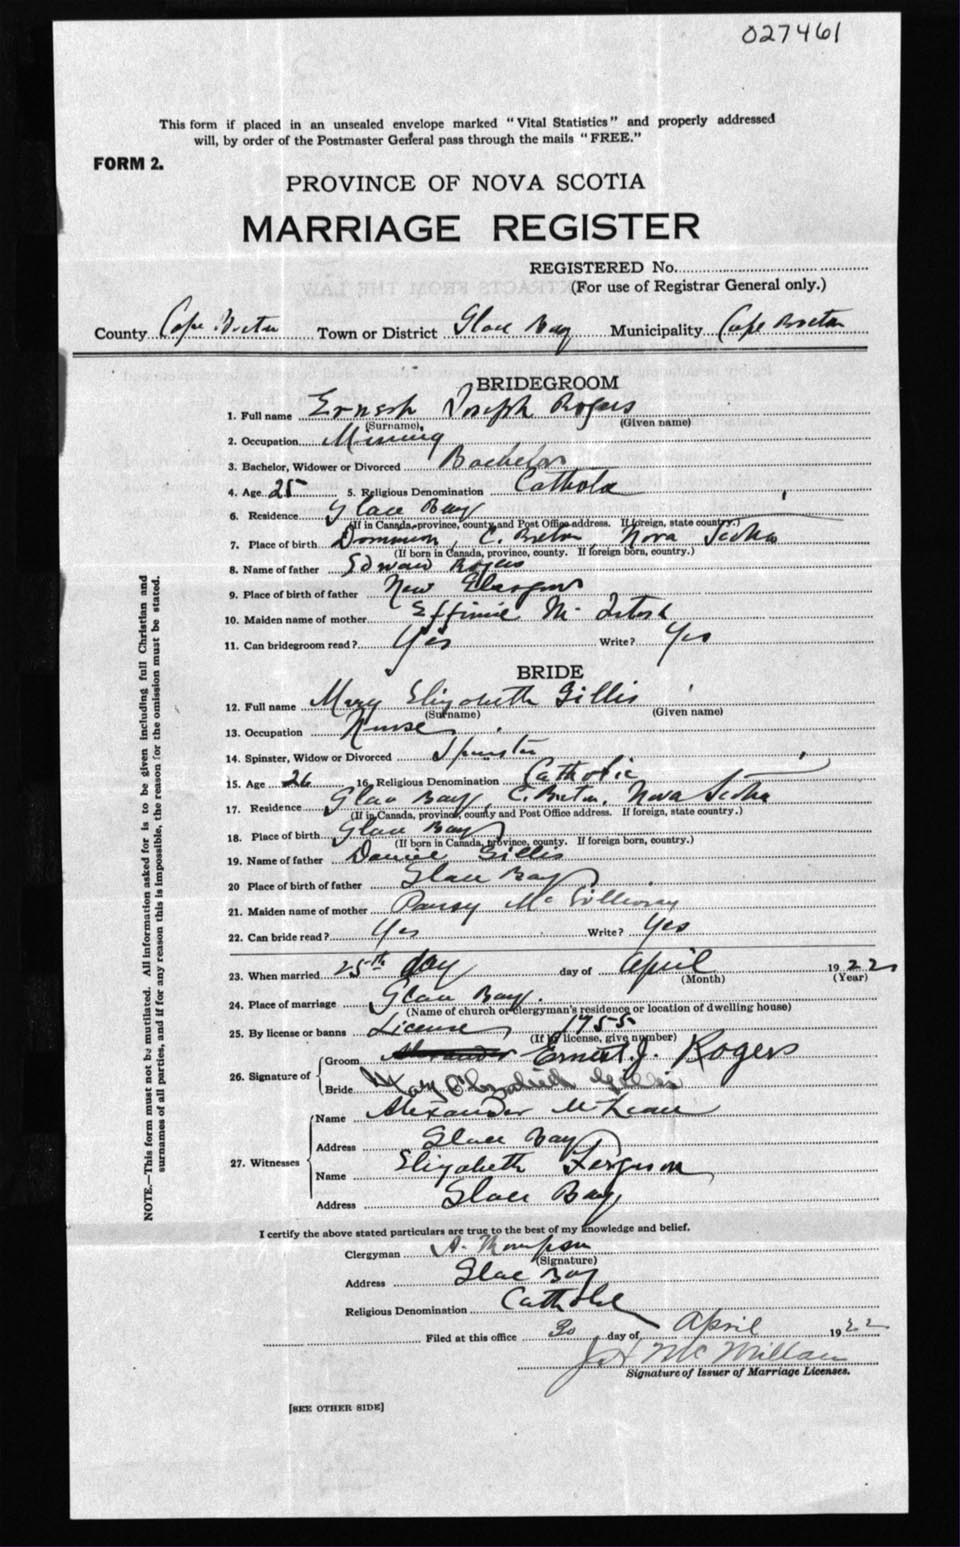 027461
This form if placed in an unsealed envelope marked "Vital Statistics" and properly addressed
will, by order of the Postmaster General pass through the mails "FREE."
FORM 2.
PROVINCE OF NOVA SCOTIA
MARRIAGE REGISTER
REGISTERED No.
(For use of Registrar General only.)
County Cape Breton Town or District Glace Bay Municipality Cape Breton
BRIDEGROOM
1. Full name Ernest Joseph Rogers
(Surname) (Given name)
2. Occupation Mining
3. Bachelor, Widower or Divorced Bachelor
4. Age 25 5. Religious Denomination Catholic
6. Residence Glace Bay
(If in Canada, province, county and Post Office address. If foreign, state country.)
7. Place of birth Dominion, C. Breton, Nova Scotia
(If born in Canada, province, county. If foreign born, country.)
8. Name of father Edward Rogers
9. Place of birth of father New Glasgow
10. Maiden name of mother Effimie Mc Intosh
11. Can bridegroom read? Yes Write? Yes
BRIDE
12. Full name Mary Elizabeth Gillis
(Surname) (Given name)
13. Occupation Nurse
14. Spinster, Widow or Divorced Spinster
15. Age 26 16. Religious Denomination Catholic
17. Residence Glace Bay, C. Breton, Nova Scotia
(If in Canada, province, county and Post Office address. If foreign, state country.)
18. Place of birth Glace Bay
(If born in Canada, province, county. If foreign born, country.)
19. Name of father Daniel Gillis
20 Place of birth of father Glace Bay
21. Maiden name of mother Mc
22. Can bride read? Yes Write? Yes
23. When married 25th day day of April 1922
(Month) (Year)
24. Place of marriage Glace Bay.
(Name of church or clergyman's residence or location of dwelling house)
25. By license or banns License 1755
(If by license, give number)
26. Signature of
Groom Alexander Ernest. J. Rogers
Bride Mary Elizabeth Gillis
27. Witnesses
Name Alexander McLean
Address Glace Bay
Name Elizabeth Ferguson
Address Glace Bay
I certify the above stated particulars are true to the best of my knowledge and belief.
Clergyman A. Thompson
(Signature)
Address Glace Bay
Religious Denomination Catholic
Filed at this office 30 day of April 1922
McMillan
Signature of Issuer of Marriage Licenses.
[SEE OTHER SIDE]
NOTE.—This form must not be mutilated. All information asked for is to be given including full Christian and
surnames of all parties, and if for any reason this is impossible, the reason for the omission must be stated.